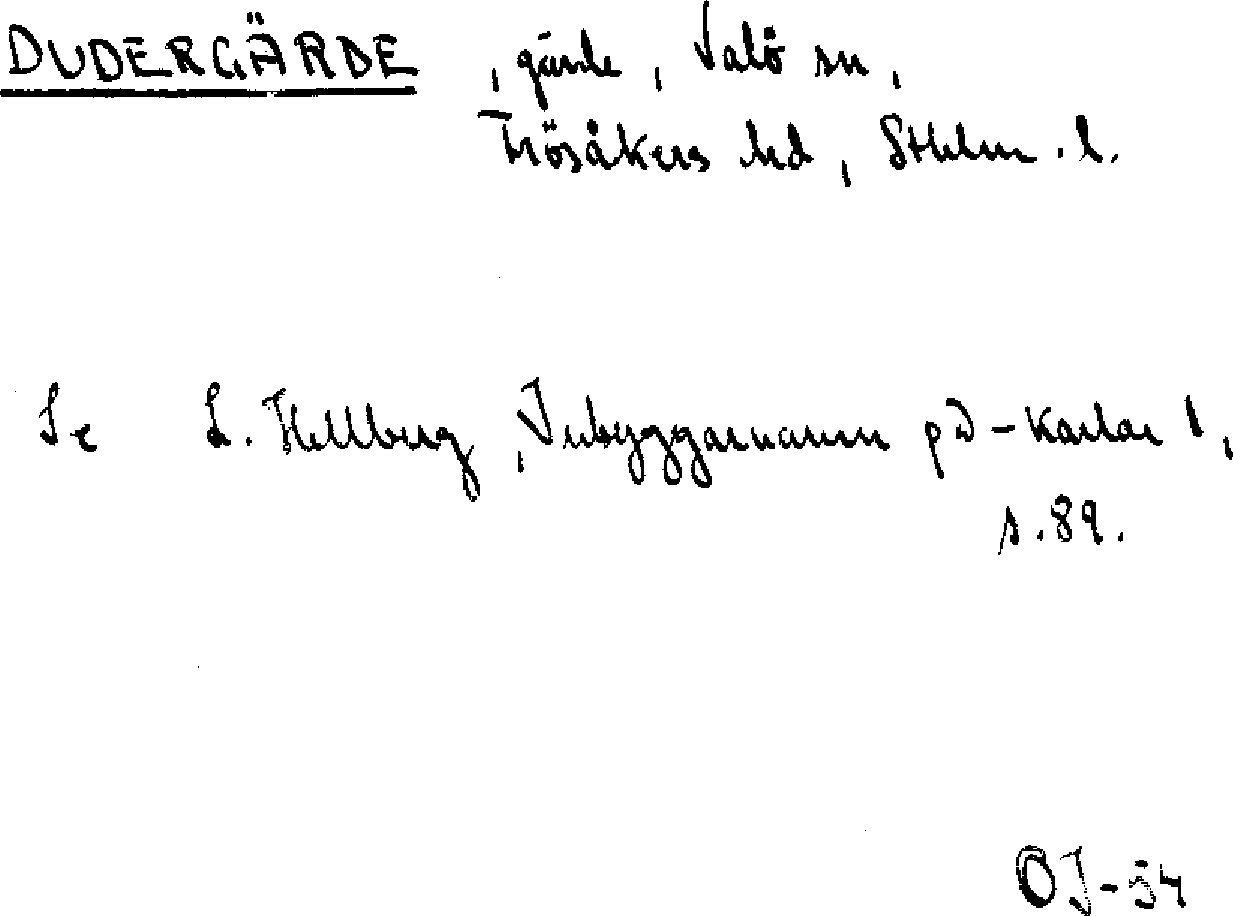 DUDERGÄRDE, gärde, Valö sn,
Frösåkers hd, Sthlm. l.
Se L. Hellberg, Inbyggarnamn på -karlar 1,
s. 89.
OJ-54